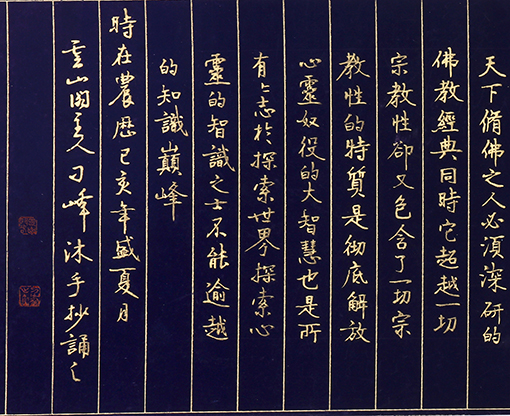 天下脩佛之人必須深研的
佛教經典同時它超越一切
宗教性卻又包含了一切宗
教性的特質是彻底解放
心靈奴役的大智慧也是所
有志於探索世界探索心
靈的智識之士不能逾越
的知識巔峰
時在農歷已亥年盛夏月
雲山図主人刁峰沐手抄誦之